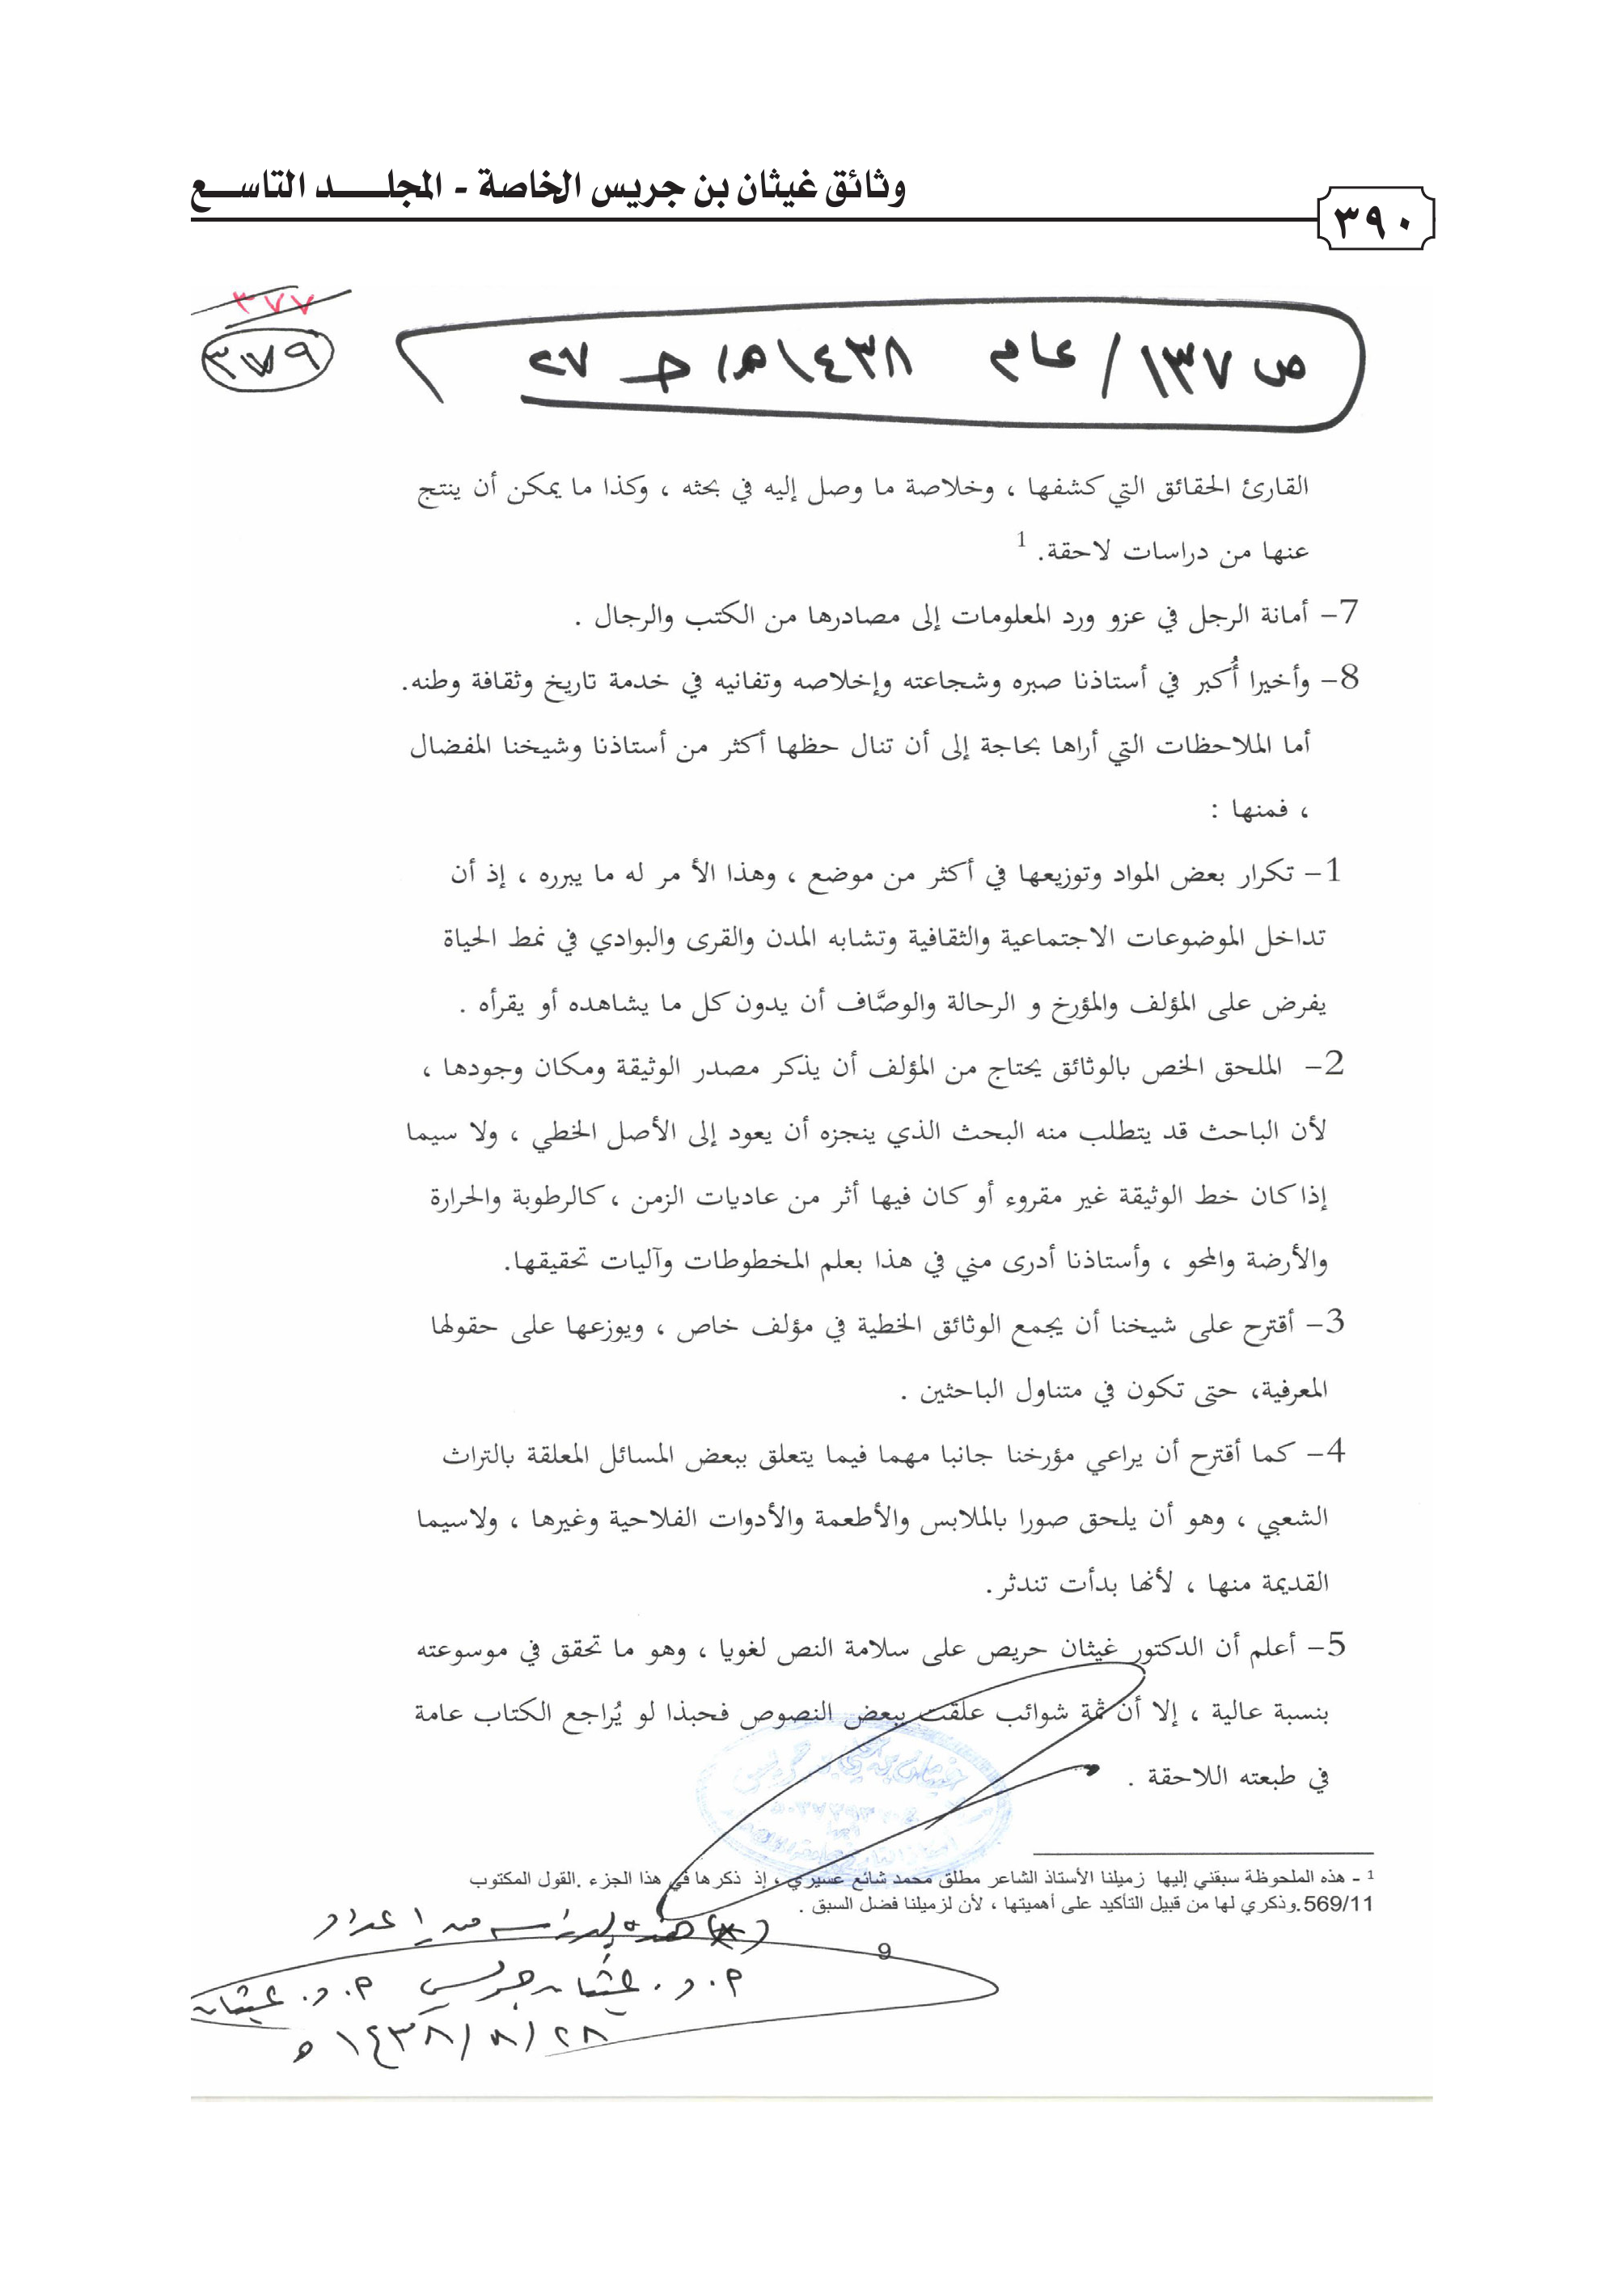 وثائق غيثان بن جريس الخاصة - المجلد التاسع
٣٩٠
٣٧٧
٣٧٩
ص ١٣٧/ عام ١٤٣٨هـ/ ج ٢٧
القارئ الحقائق التي كشفها ، وخلاصة ما وصل إليه في بحثه ، وكذا ما يمكن أن ينتج
عنها من دراسات لاحقة. 1
7- أمانة الرجل في عزو ورد المعلومات إلى مصادرها من الكتب والرجال .
8- وأخيرا أُكبر في أستاذنا صبره وشجاعته وإخلاصه وتفانيه في خدمة تاريخ وثقافة وطنه.
أما الملاحظات التي أراها بحاجة إلى أن تنال حظها أكثر من أستاذنا وشيخنا المفضال
، فمنها :
1- تكرار بعض المواد وتوزيعها في أكثر من موضع ، وهذا الأ مر له ما يبرره ، إذ أن
تداخل الموضوعات الاجتماعية والثقافية وتشابه المدن والقرى والبوادي في نمط الحياة
يفرض على المؤلف والمؤرخ و الرحالة والوصَّاف أن يدون كل ما يشاهده أو يقرأه .
2- الملحق الخص بالوثائق يحتاج من المؤلف أن يذكر مصدر الوثيقة ومكان وجودها ،
لأن الباحث قد يتطلب منه البحث الذي ينجزه أن يعود إلى الأصل الخطي ، ولا سيما
إذا كان خط الوثيقة غير مقروء أو كان فيها أثر من عاديات الزمن ، كالرطوبة والحرارة
والأرضة والمحو ، وأستاذنا أدرى مني في هذا بعلم المخطوطات وآليات تحقيقها.
3- أقترح على شيخنا أن يجمع الوثائق الخطية في مؤلف خاص ، ويوزعها على حقولها
المعرفية، حتى تكون في متناول الباحثين .
4- كما أقترح أن يراعي مؤرخنا جانبا مهما فيما يتعلق ببعض المسائل المعلقة بالتراث
الشعبي ، وهو أن يلحق صورا بالملابس والأطعمة والأدوات الفلاحية وغيرها ، ولاسيما
القديمة منها ، لأنها بدأت تندثر.
5- أعلم أن الدكتور غيثان حريص على سلامة النص لغويا ، وهو ما تحقق في موسوعته
بنسبة عالية ، إلا أن ثمة شوائب علقت ببعض النصوص فحبذا لو يُراجع الكتاب عامة
في طبعته اللاحقة .
1 - هذه الملحوظة سبقني إليها زميلنا الأستاذ الشاعر مطلق محمد شائع عسيري ، إذ ذكرها في هذا الجزء .القول المكتوب
569/11.وذكري لها من قبيل التأكيد على أهميتها ، لأن لزميلنا فضل السبق .
9
(*) هذه الدراسة من إعداد
م. د. غيثان جريس م. د. غيثان
٢٨/ ٨/ ١٤٣٨هـ